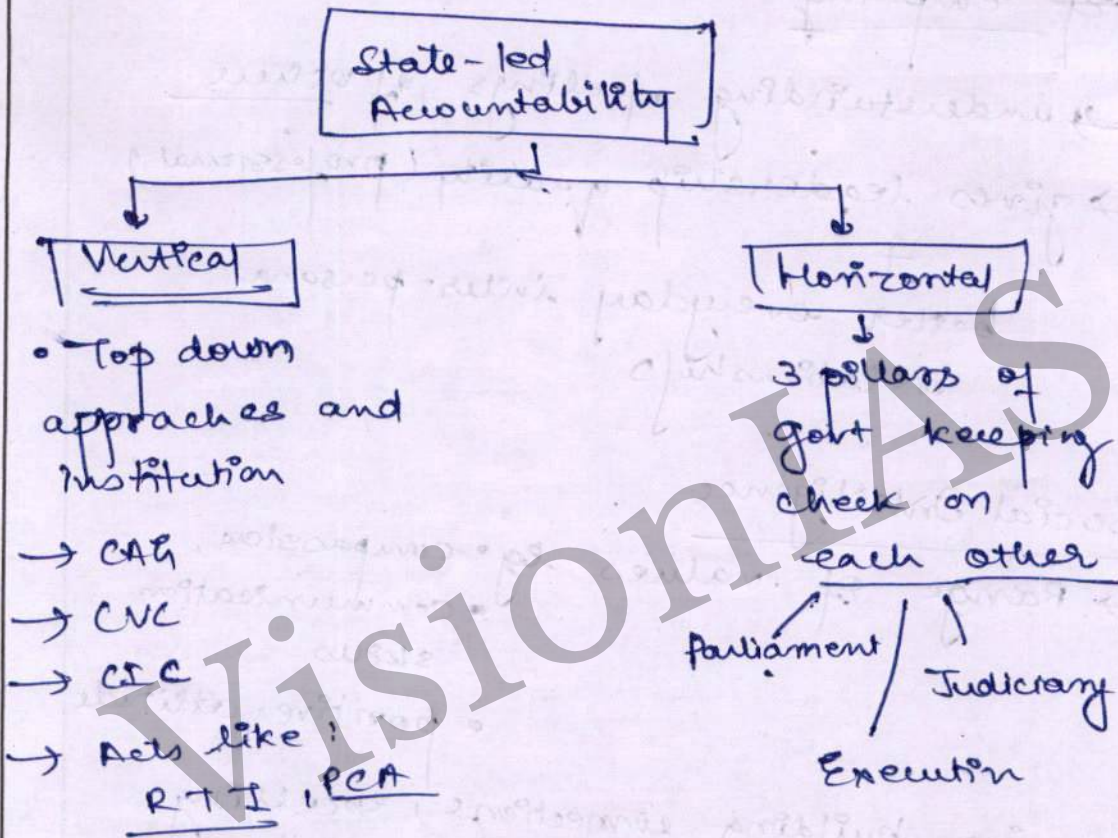 State-led
Accountability
Vertical
• Top down
approaches and
institution
→ CAG
→ CVC
→ CIC
→ Acts like :
RTI , PCA
Horizontal
3 pillars of
govt keeping
check on
each other
Parliament
Judiciary
Executive
VisionIAS